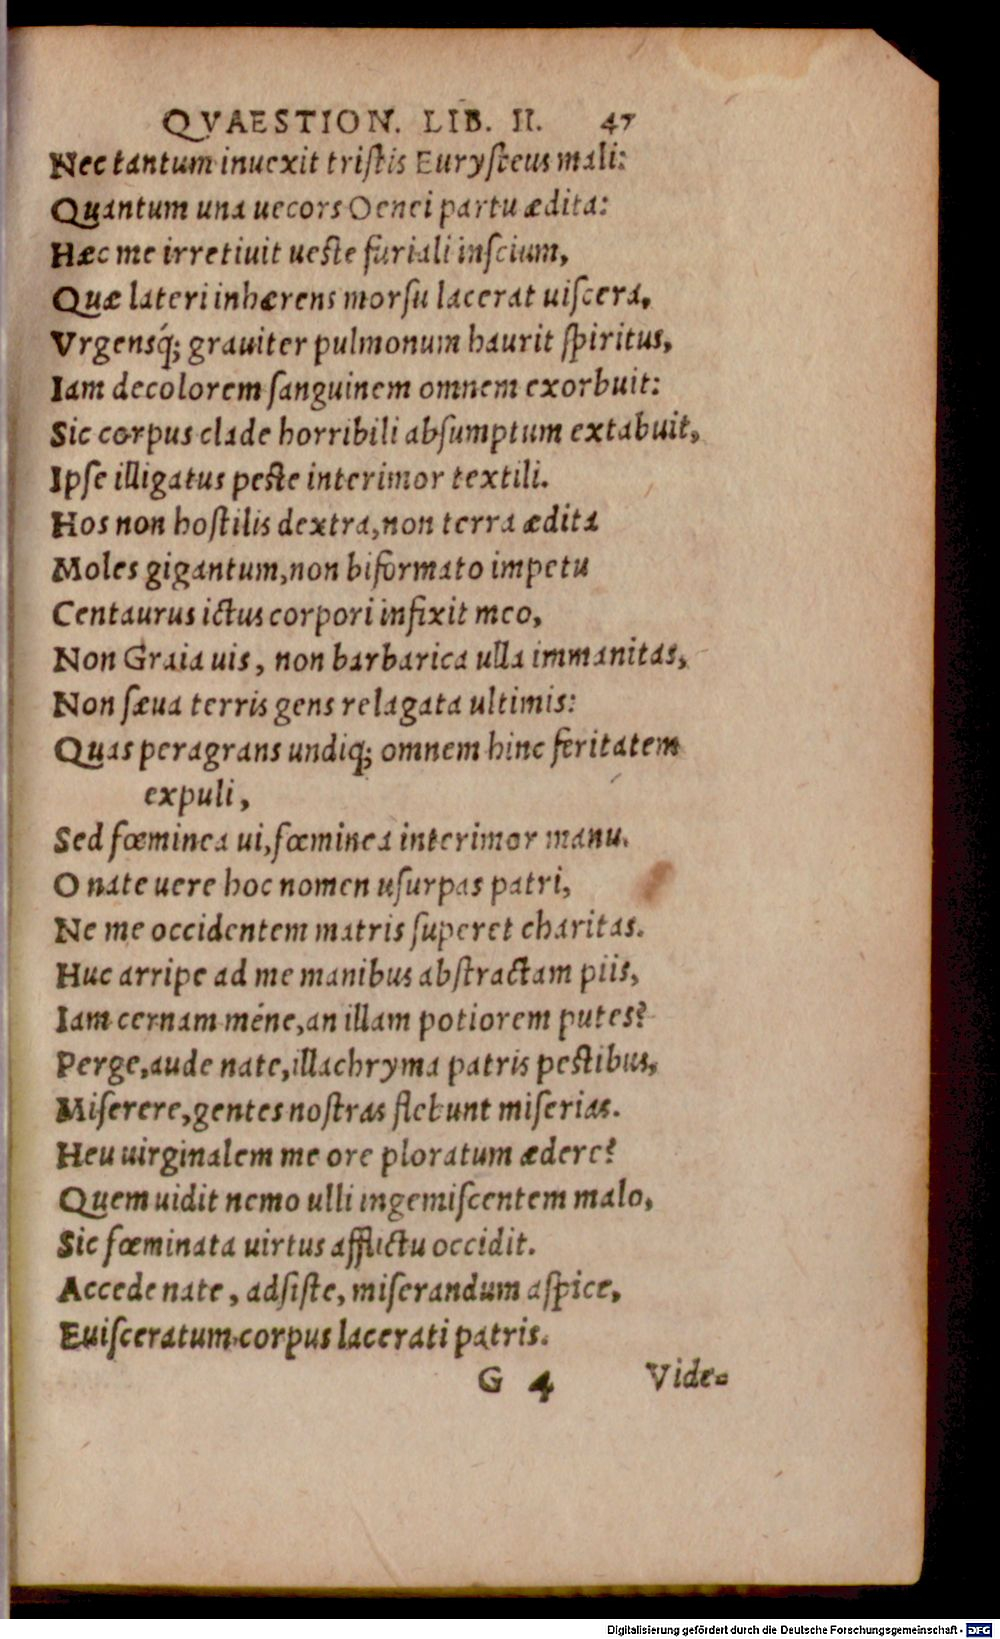 QVAESTION. LIB. II. 47
Nec tantum inuexit triſtis Euryſteus mali:
Quantum una uecors Oenei partu ædita:
Hæc me irretiuit ueſte furiali inſcium,
Quæ lateri inhærens morſu lacerat uiſcera,
Vrgensq́; grauiter pulmonum haurit ſpiritus,
Iam decolorem ſanguinem omnem exorbuit:
Sic corpus clade horribili abſumptum extabuit,
Ipſe illigatus peſte interimor textili.
Hos non hoſtilis dextra, non terra ædita
Moles gigantum, non biformato impetu
Centaurus ictus corpori infixit meo,
Non Graia uis, non barbarica ulla immanitas,
Non ſæua terris gens relagata ultimis:
Quas peragrans undiq; omnem hinc feritatem
expuli,
Sed fœminea ui, fœminea interimor manu.
O nate uere hoc nomen uſurpas patri,
Ne me occidentem matris ſuperet charitas.
Huc arripe ad me manibus abſtractam piis,
Iam cernam méne, an illam potiorem putes?
Perge, aude nate, illachryma patris peſtibus,
Miſerere, gentes noſtras flebunt miſerias.
Heu uirginalem me ore ploratum ædere?
Quem uidit nemo ulli ingemiſcentem malo,
Sic fœminata uirtus afflictu occidit.
Accede nate, adſiſte, miſerandum aſpice,
Euiſceratum corpus lacerati patris.
G 4 Vide=
Digitalisierung gefördert durch die Deutsche Forschungsgemeinschaft - DFG